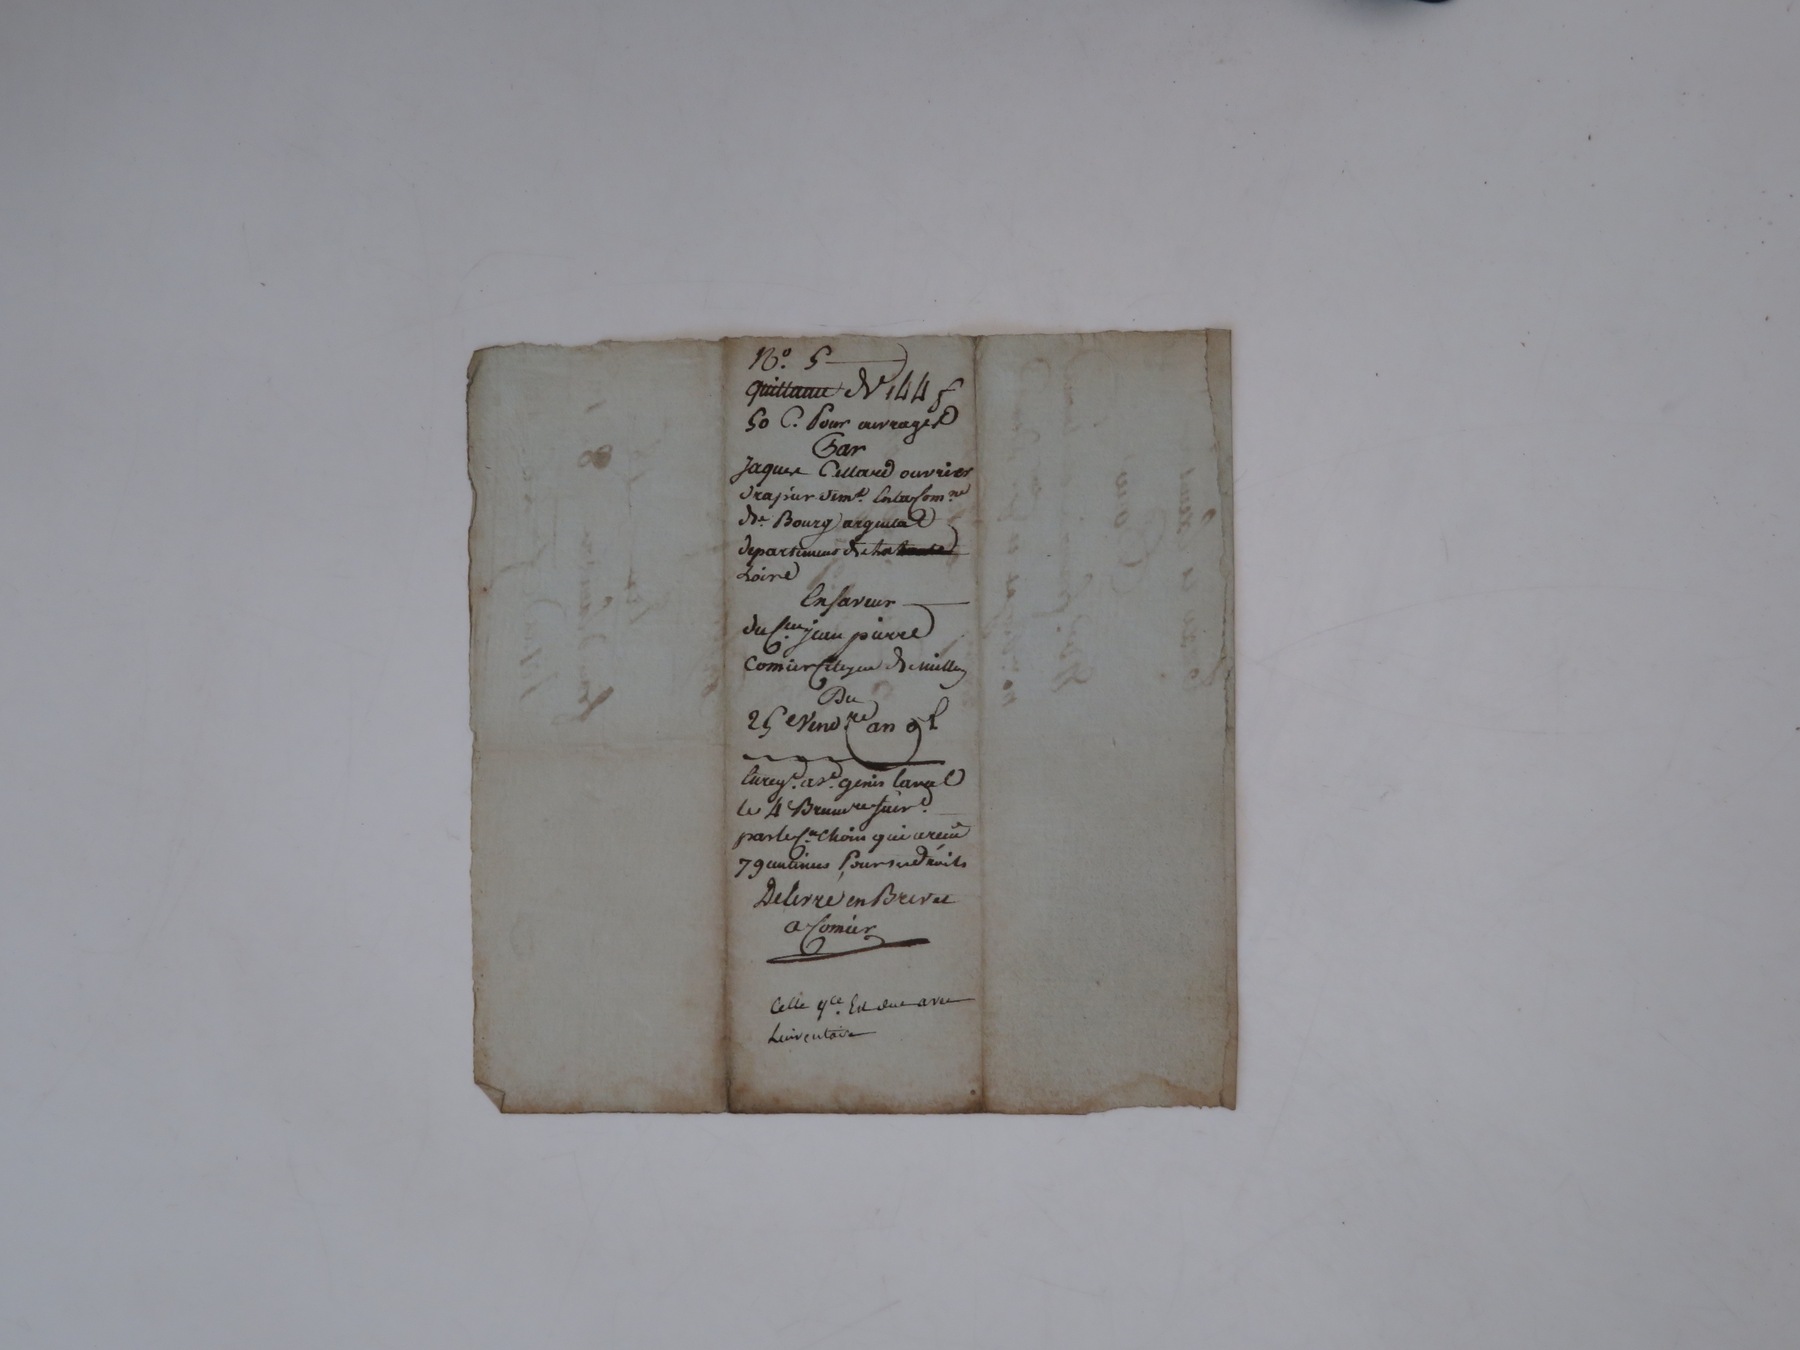 No. 5
quittance de 144 f
50 C. Pour ouvrages
Par
Jaques Cellard ouvrier
drapier demt. En la Comne
de Bourg argental
departement de la haute
Loire
En faveur
du Cen jean pierre
Comier Citoyen de
Du
25e Vendre an 9e
Enregé. a St. genis laval
le 4e Brumre suivt.
par le Cen Choin qui a recu
79 centimes Pour ses droits
Delivré en Brevet
a Comier
Cette qce. Est due avec
Linventaire